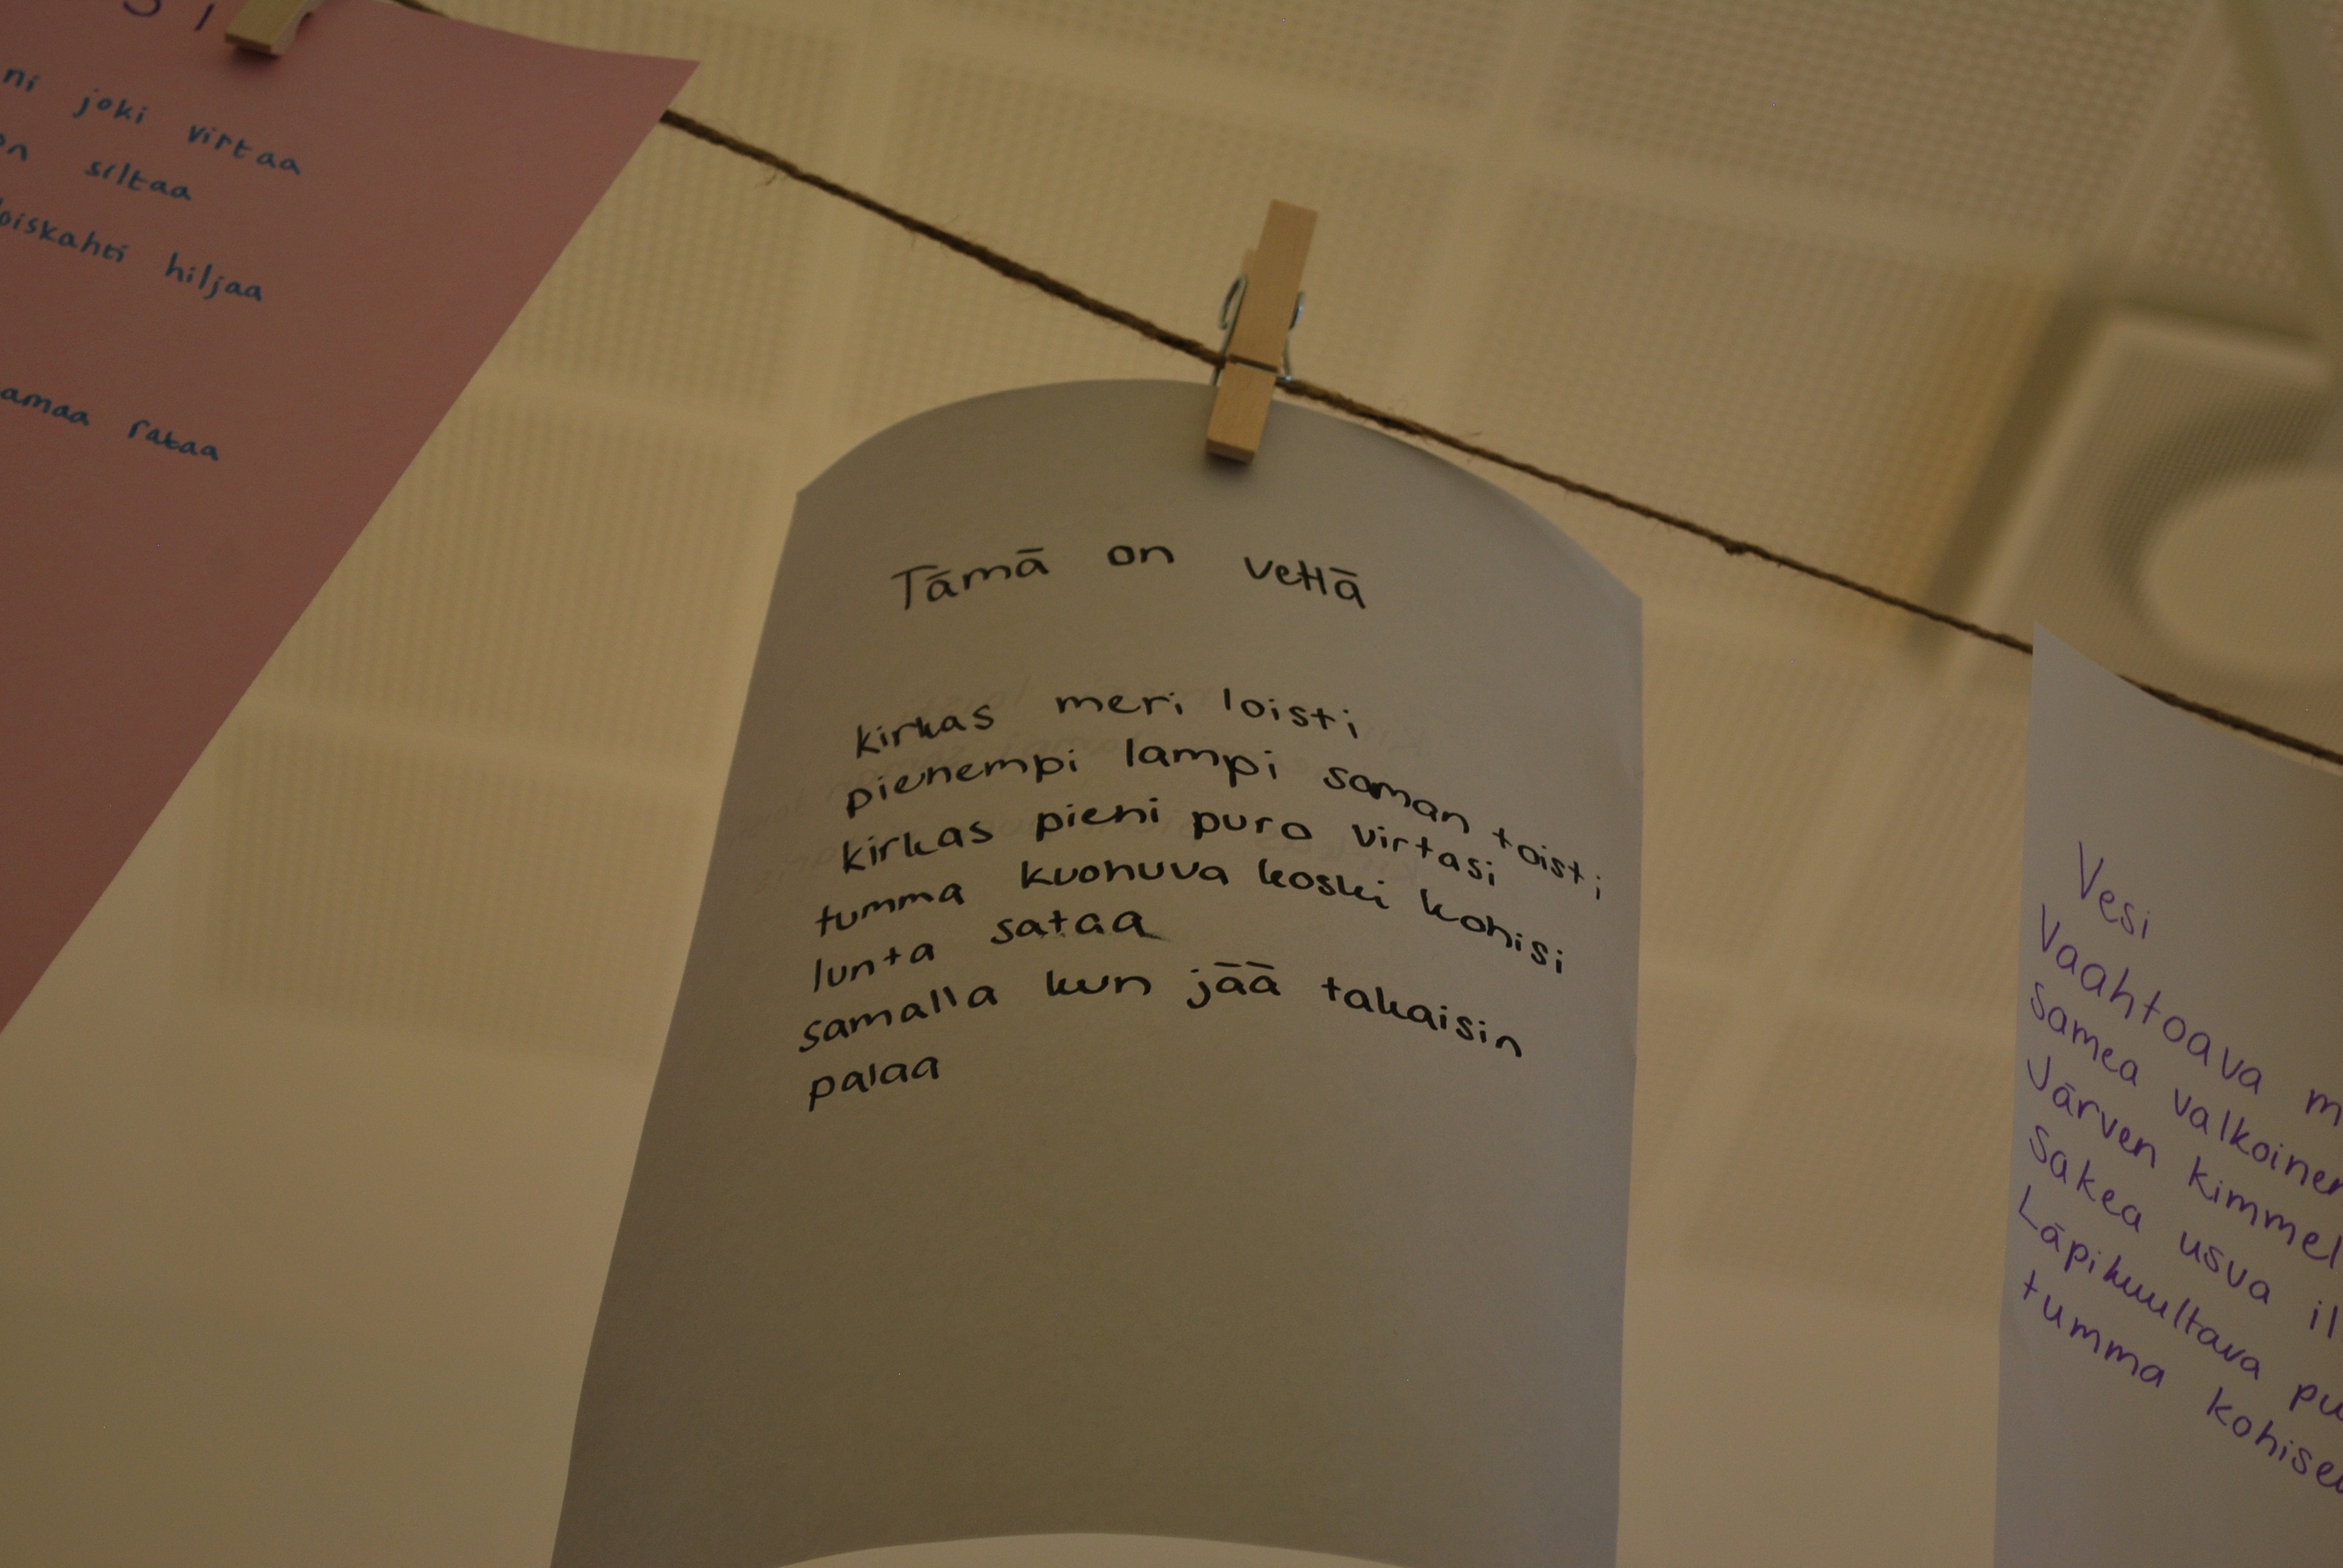 joki virtaa
siltaa
hiljaa
rataa
Tämä on vettä
kirkas meri loisti
pienempi lampi saman toisti
kirkas pieni puro virtasi
tumma kuohuva koski kohisi
lunta sataa
samalla kun jää takaisin
palaa
Vesi
Vaahtoava
samea valkoinen
Järven kimmel
Sakea usva
Läpikuultava
tumma